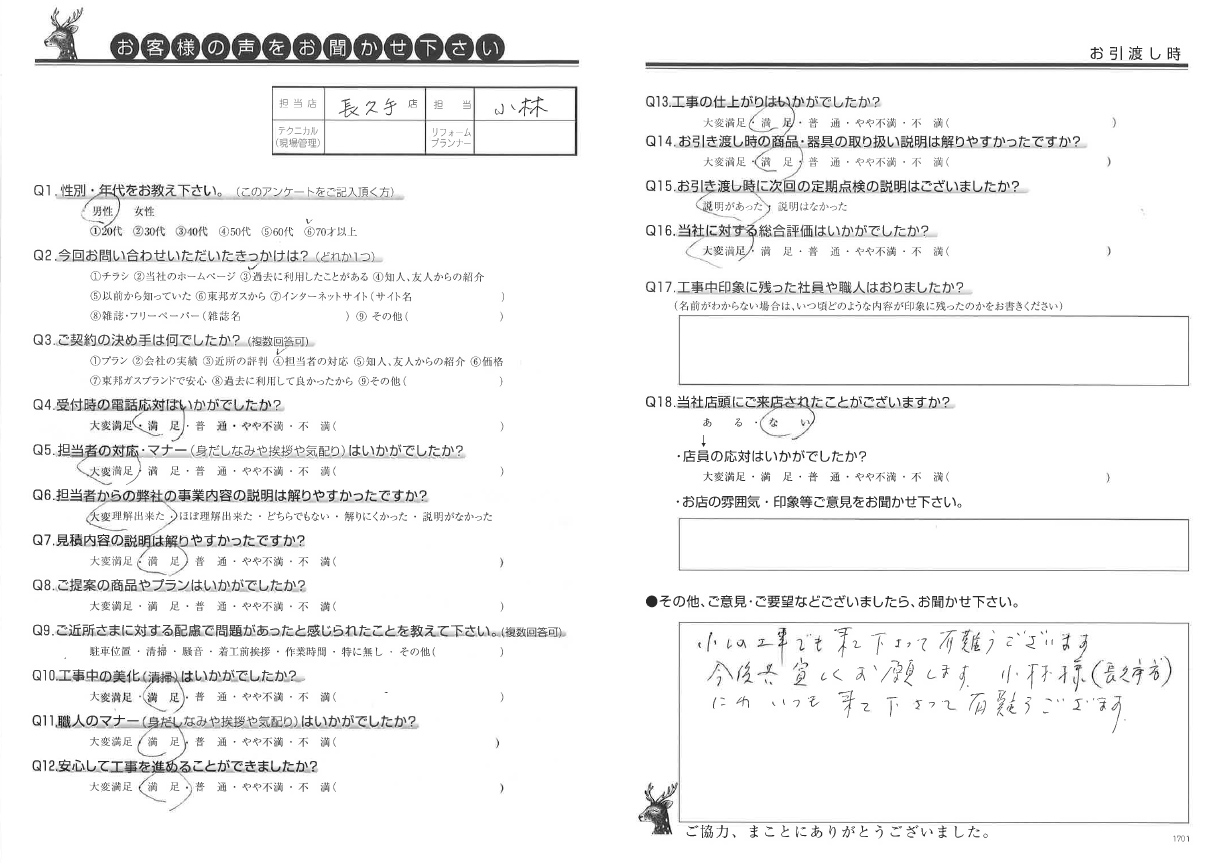 お客様の声をお聞かせ下さい
担当店 長久手 店 担当 小林
テクニカル(現場管理) リフォームプランナー
Q1.性別・年代をお教え下さい。(このアンケートをご記入頂く方)
男性 女性
①20代 ②30代 ③40代 ④50代 ⑤60代 ⑥70才以上
Q2.今回お問い合わせいただいたきっかけは?(どれか1つ)
①チラシ ②当社のホームページ ③過去に利用したことがある ④知人、友人からの紹介
⑤以前から知っていた ⑥東邦ガスから ⑦インターネットサイト(サイト名 )
⑧雑誌・フリーペーパー(雑誌名 ) ⑨その他( )
Q3.ご契約の決め手は何でしたか?(複数回答可)
①プラン ②会社の実績 ③近所の評判 ④担当者の対応 ⑤知人、友人からの紹介 ⑥価格
⑦東邦ガスブランドで安心 ⑧過去に利用して良かったから ⑨その他( )
Q4.受付時の電話応対はいかがでしたか?
大変満足・満 足・普 通・やや不満・不 満( )
Q5.担当者の対応・マナー(身だしなみや挨拶や気配り)はいかがでしたか?
大変満足・満 足・普 通・やや不満・不 満( )
Q6.担当者からの弊社の事業内容の説明は解りやすかったですか?
大変理解出来た・ほぼ理解出来た・どちらでもない・解りにくかった・説明がなかった
Q7.見積内容の説明は解りやすかったですか?
大変満足・満 足・普 通・やや不満・不 満( )
Q8.ご提案の商品やプランはいかがでしたか?
大変満足・満 足・普 通・やや不満・不 満( )
Q9.ご近所さまに対する配慮で問題があったと感じられたことを教えて下さい。(複数回答可)
駐車位置・清掃・騒音・着工前挨拶・作業時間・特に無し・その他( )
Q10.工事中の美化(清掃)はいかがでしたか?
大変満足・満 足・普 通・やや不満・不 満( )
Q11.職人のマナー(身だしなみや挨拶や気配り)はいかがでしたか?
大変満足・満 足・普 通・やや不満・不 満( )
Q12.安心して工事を進めることができましたか?
大変満足・満 足・普 通・やや不満・不 満( )
お引渡し時
Q13.工事の仕上がりはいかがでしたか?
大変満足・満 足・普 通・やや不満・不 満( )
Q14.お引き渡し時の商品・器具の取り扱い説明は解りやすかったですか?
大変満足・満 足・普 通・やや不満・不 満( )
Q15.お引き渡し時に次回の定期点検の説明はございましたか?
説明があった・説明はなかった
Q16.当社に対する総合評価はいかがでしたか?
大変満足・満 足・普 通・やや不満・不 満( )
Q17.工事中印象に残った社員や職人はおりましたか?
(名前がわからない場合は、いつ頃どのような内容が印象に残ったのかをお書きください)
Q18.当社店頭にご来店されたことがございますか?
あ る・な い
↓
・店員の応対はいかがでしたか?
大変満足・満 足・普 通・やや不満・不 満( )
・お店の雰囲気・印象等ご意見をお聞かせ下さい。
●その他、ご意見・ご要望などございましたら、お聞かせ下さい。
小しの工事でも来て下さって有難うございます
今後共宜しくお願します。小林様(長久手店)
にわいつも来て下さって有難うございます。
ご協力、まことにありがとうございました。
1701